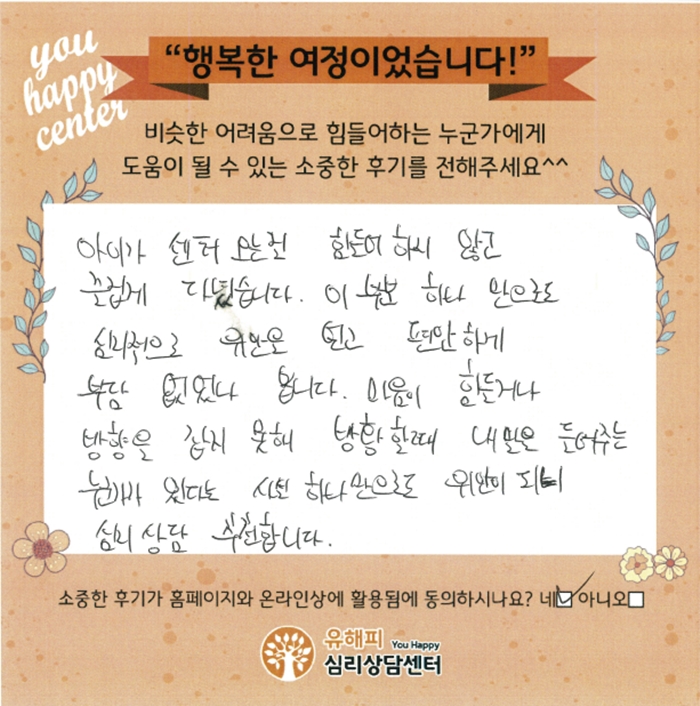 you
happy
center
“행복한 여정이었습니다!”
비슷한 어려움으로 힘들어하는 누군가에게
도움이 될 수 있는 소중한 후기를 전해주세요^^
아이가 센터 오는걸 힘들어 하지 않고
즐겁게 다녔습니다. 이 부분 하나 만으로도
심리적으로 위안을 얻고 편안하게
부담 없었나 봅니다. 마음이 힘든거나
방향을 잡지 못해 방황할때 내 말을 들어주는
누가 있다는 사실 하나만으로도 위안이 되니
심리 상담 추천합니다.
소중한 후기가 홈페이지와 온라인상에 활용됨에 동의하시나요? 네 아니오
유해피 You Happy
심리상담센터